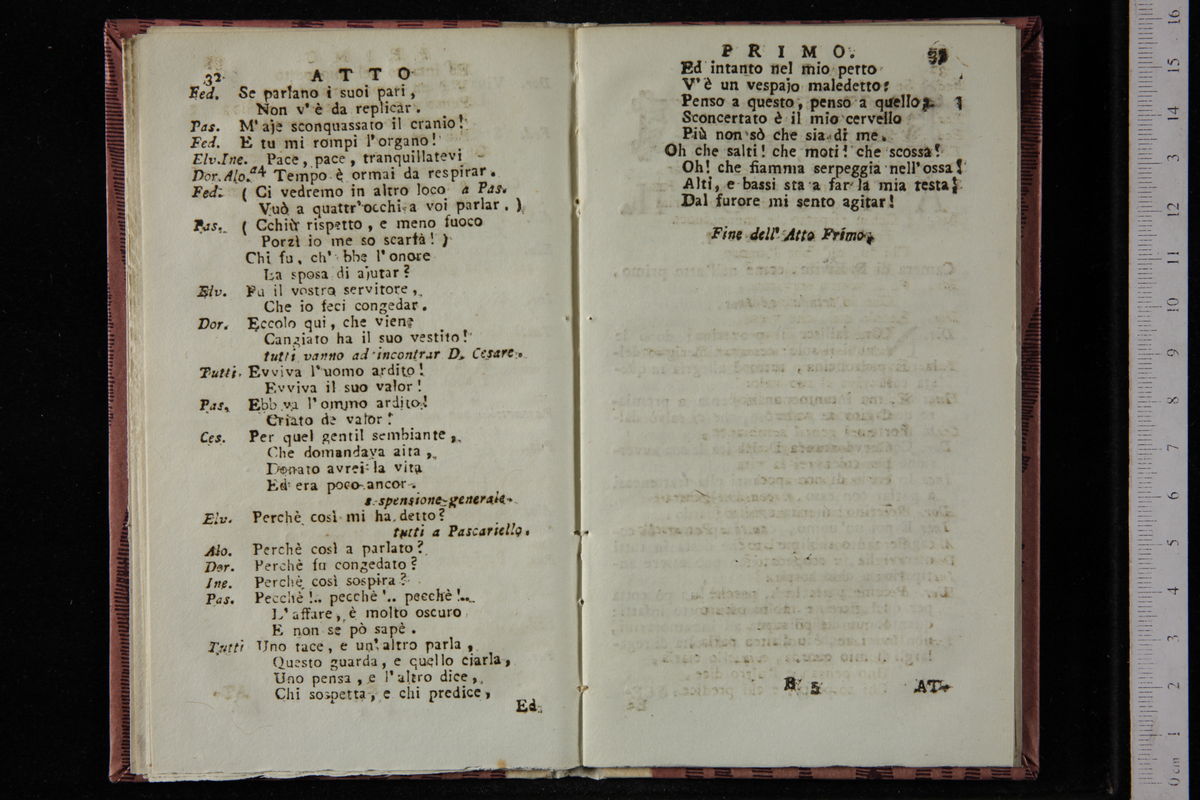 32 ATTO
Fed. Se parlano i suoi pari,
Non v'è da replicar.
Pas. M'aje sconquassato il cranio!
Fed. E tu mi rompi l'organo!
Elv.Ine. Pace, pace, tranquillatevi
Dor.Alo. a4 Tempo è ormai da respirar.
Fed. ( Ci vedremo in altro loco a Pas.
Vuò a quattr'occhi a voi parlar. )
Pas. ( Cchiù rispetto, e meno fuoco
Porzì io me so scartà! )
Chi fu, ch' ebbe l'onore
La sposa di ajutar?
Elv. Fu il vostro servitore,
Che io feci congedar.
Dor. Eccolo qui, che viene
Cangiato ha il suo vestito!
tutti vanno ad incontrar D. Cesare.
Tutti. Evviva l'uomo ardito!
Evviva il suo valor!
Pas. Ebb va l'ommo ardito!
Criato de valor!
Ces. Per quel gentil sembiante,
Che domandava aita,
Donato avrei la vita
Ed era poco ancor.
sospensione generale.
Elv. Perchè così mi ha detto?
tutti a Pascariello.
Alo. Perchè così a parlato?
Dor. Perchè fu congedato?
Ine. Perchè così sospira?
Pas. Pecchè!.. pecchè!.. pecchè!...
L'affare, è molto oscuro
E non se pò sapè.
Tutti Uno tace, e un'altro parla,
Questo guarda, e quello ciarla,
Uno pensa, e l'altro dice,
Chi sospetta, e chi predice,
Ed
PRIMO. 33
Ed intanto nel mio petto
V'è un vespajo maledetto:
Penso a questo, penso a quello,
Sconcertato è il mio cervello
Più non sò che sia di me.
Oh che salti! che moti! che scossa!
Oh! che fiamma serpeggia nell'ossa!
Alti, e bassi sta a far la mia testa!
Dal furore mi sento agitar!
Fine dell' Atto Primo.
B 5 AT-